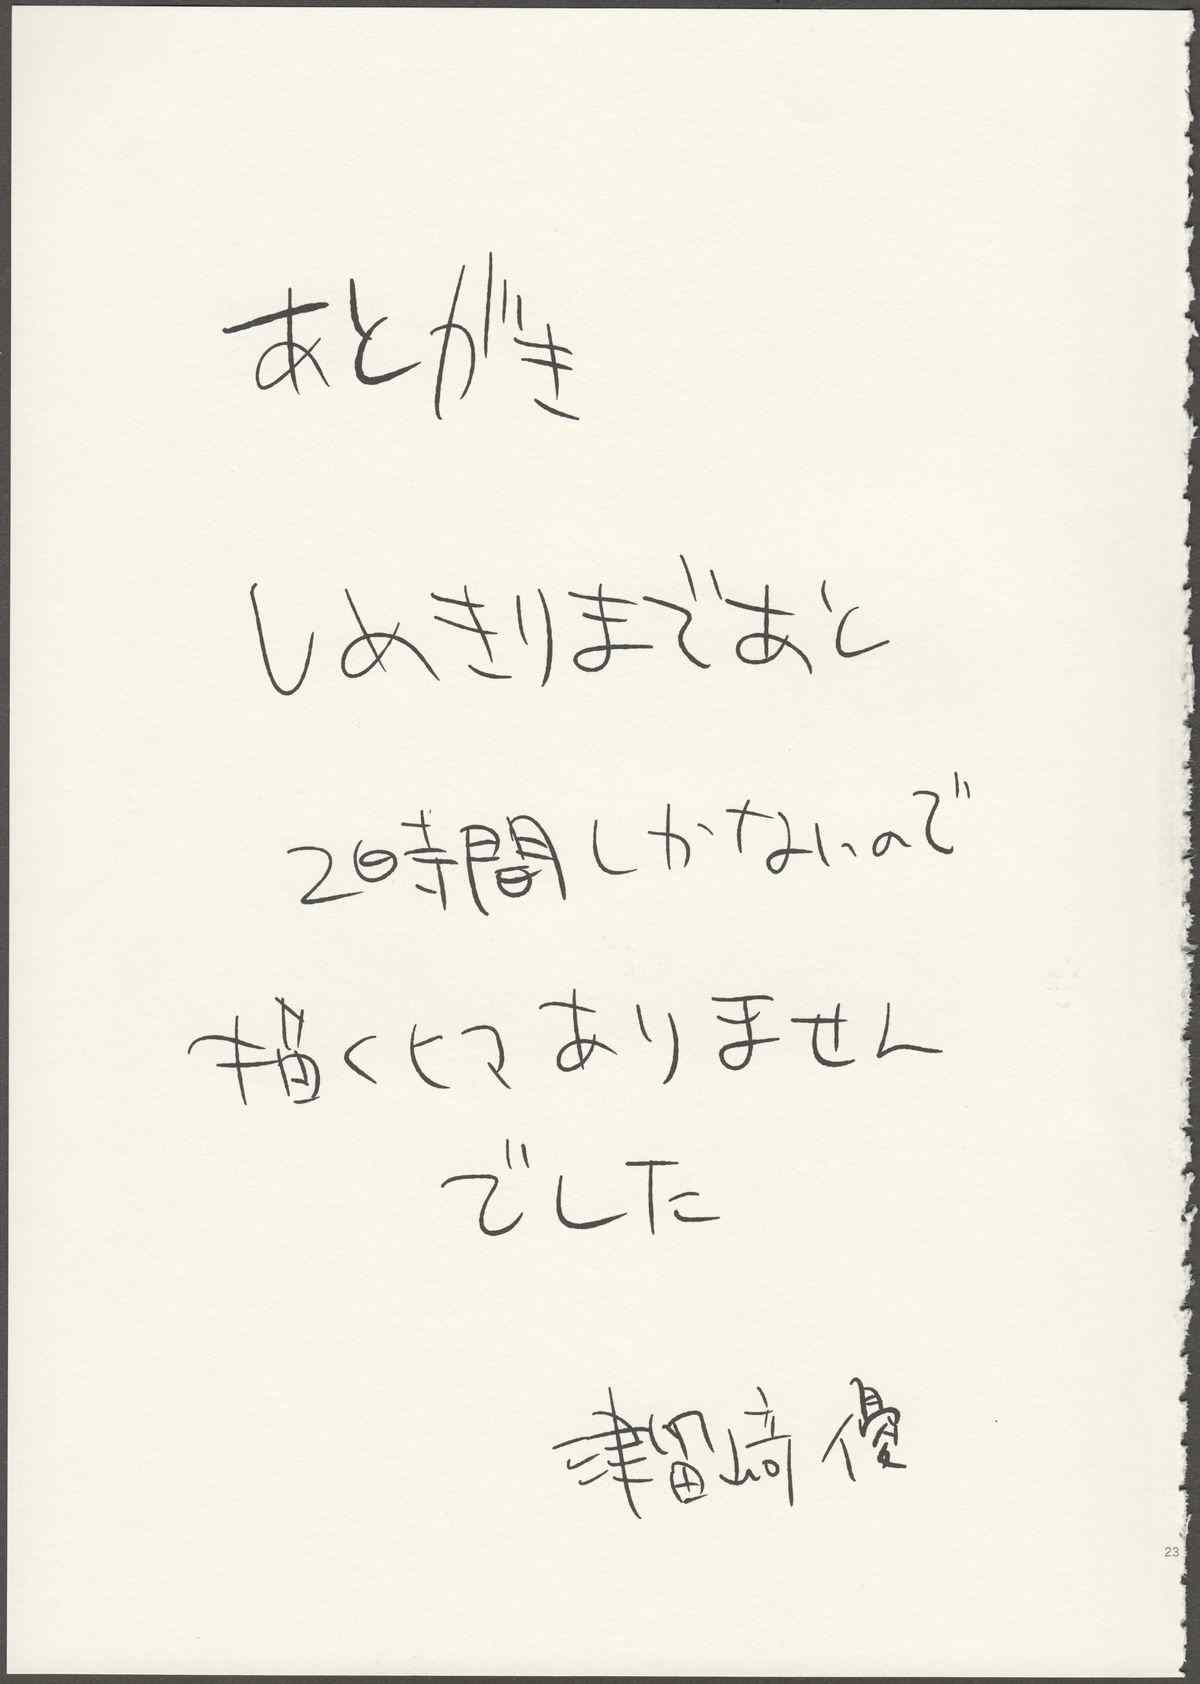 あとがき
しめきりまであと
2時間しかないので
描くヒマありません
でした
津留崎優
23